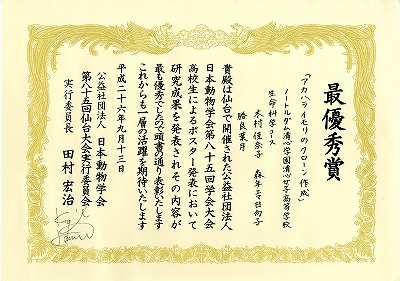 最優秀賞
「アカハライモリのクローン作成」
ノートルダム清心学園清心女子高等学校
生命科学コース
木村 佳奈子 森年 日向子
勝良 葉月
貴殿は仙台で開催された公益社団法人
日本動物学会第八十五回学会大会
高校生によるポスター発表において
研究成果を発表されその内容が
最も優秀でしたので頭書の通り表彰いたします
これからも一層の活躍を期待いたします
平成二十六年九月十三日
公益社団法人 日本動物学会
第八十五回仙台大会実行委員会
実行委員長 田村 宏治